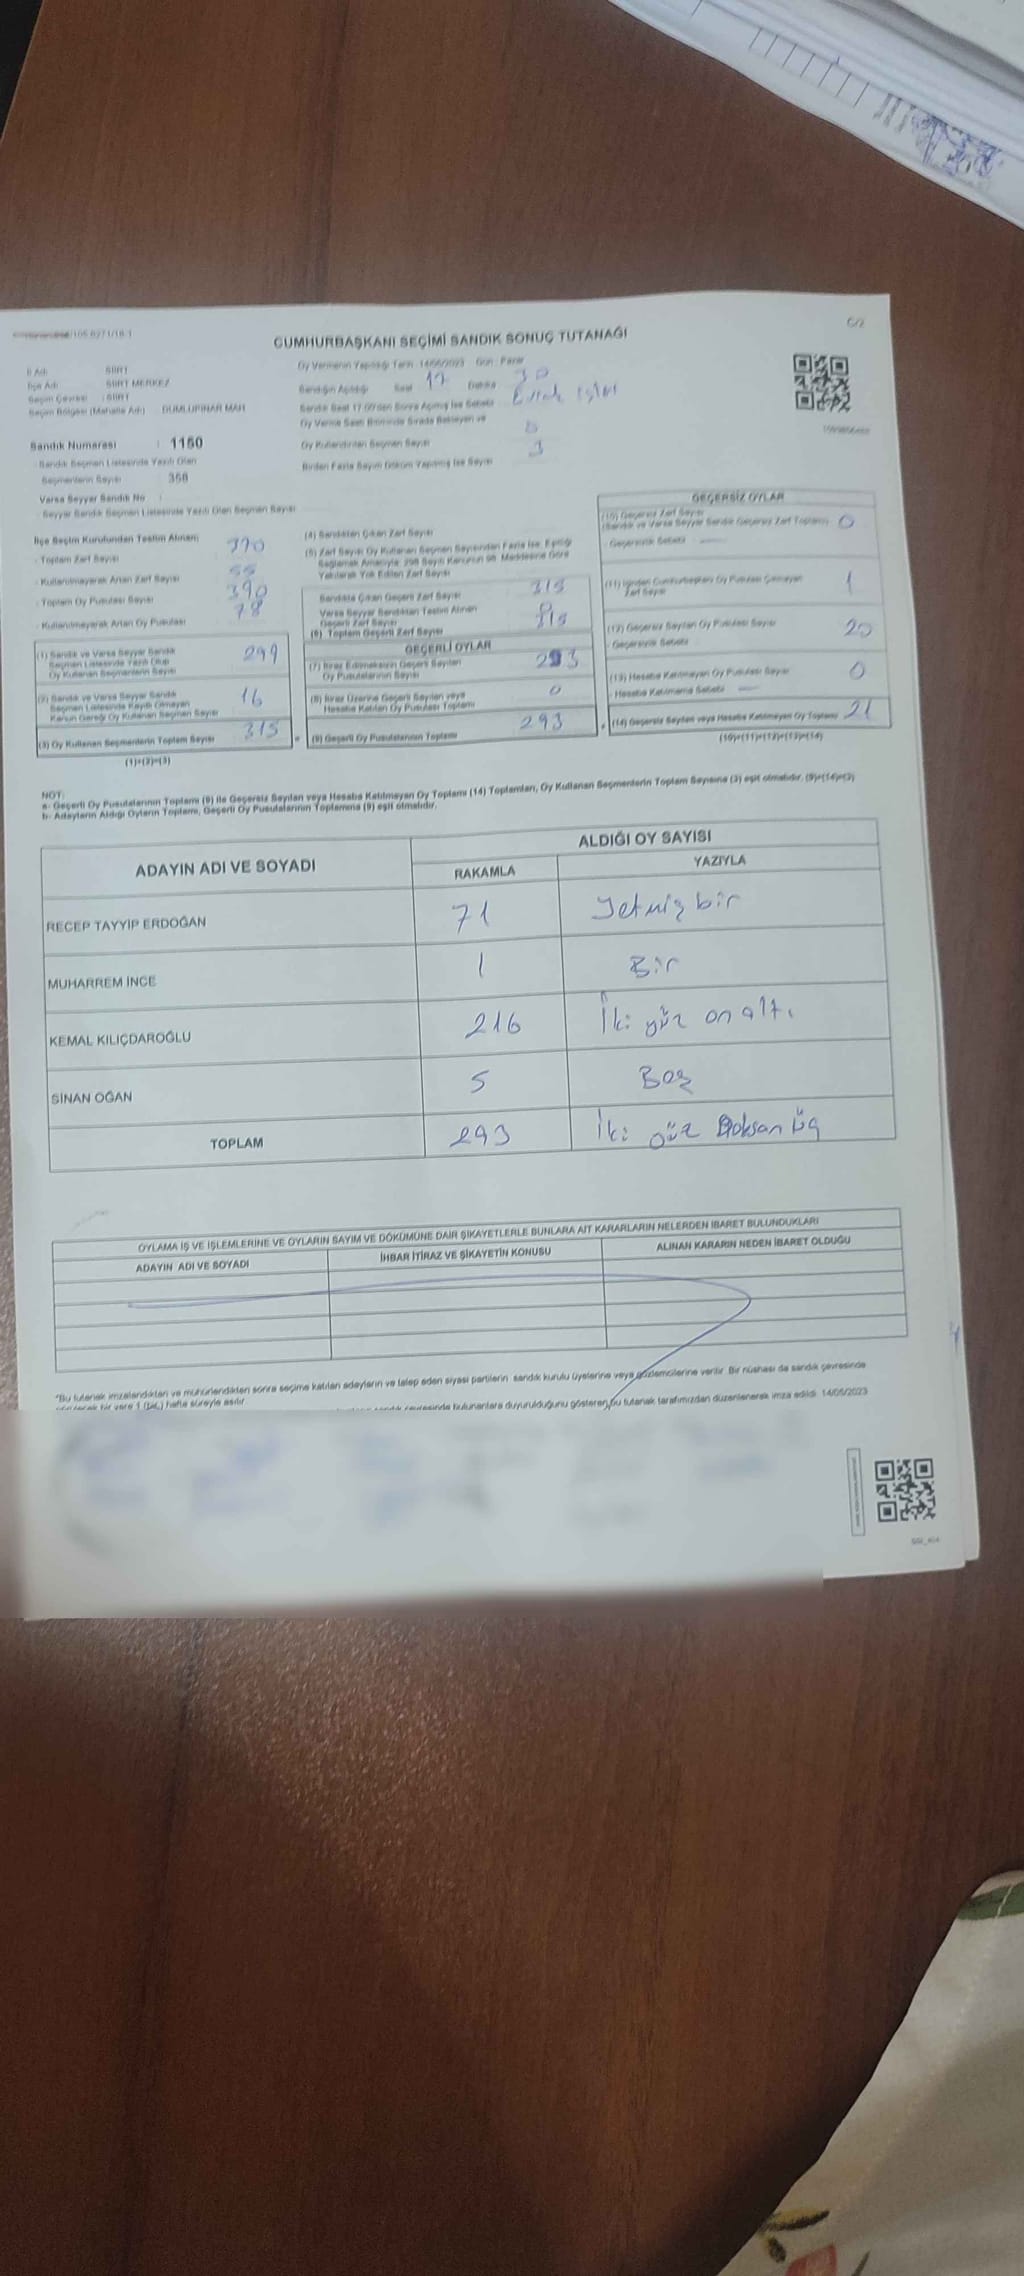 C/2
CUMHURBAŞKANI SEÇİMİ SANDIK SONUÇ TUTANAĞI
İl Adı : SİİRT
İlçe Adı : SİİRT MERKEZ
Seçim Çevresi : SİİRT
Seçim Bölgesi (Mahalle Adı) : DUMLUPINAR MAH.
Oy Vermenin Yapıldığı Tarih : 14/05/2023 Gün : Pazar
Sandığın Açıldığı Saat 17 Dakika 30
Sandık Saat 17.00'den Sonra Açılmış İse Sebebi Evrak işleri
Oy Verme Saati Bitiminde Sırada Bekleyen ve
Oy Kullandırılan Seçmen Sayısı
Birden Fazla Sayım Döküm Yapılmış İse Sayısı 3
Sandık Numarası : 1150
Sandık Seçmen Listesinde Yazılı Olan
Seçmenlerin Sayısı : 358
Varsa Seyyar Sandık No :
Seyyar Sandık Seçmen Listesinde Yazılı Olan Seçmen Sayısı
İlçe Seçim Kurulundan Teslim Alınan
- Toplam Zarf Sayısı 370
- Kullanılmayarak Artan Zarf Sayısı 55
- Toplam Oy Pusulası Sayısı 390
- Kullanılmayarak Artan Oy Pusulası 78
(1) Sandık ve Varsa Seyyar Sandık
Seçmen Listesinde Yazılı Olup
Oy Kullanan Seçmenlerin Sayısı 299
(2) Sandık ve Varsa Seyyar Sandık
Seçmen Listesinde Kayıtlı Olmayan
Kanun Gereği Oy Kullanan Seçmen Sayısı 16
(3) Oy Kullanan Seçmenlerin Toplam Sayısı 315
(1)+(2)=(3)
(4) Sandıktan Çıkan Zarf Sayısı
(5) Zarf Sayısı Oy Kullanan Seçmen Sayısından Fazla İse, Eşitliği
Sağlamak Amacıyla, 298 Sayılı Kanunun 98. Maddesine Göre
Yakılarak Yok Edilen Zarf Sayısı
Sandıkta Çıkan Geçerli Zarf Sayısı 315
Varsa Seyyar Sandıktan Teslim Alınan
Geçerli Zarf Sayısı 0
(6) Toplam Geçerli Zarf Sayısı 315
GEÇERLİ OYLAR
(7) İtiraz Edilmeksizin Geçerli Sayılan
Oy Pusulalarının Sayısı 293
(8) İtiraz Üzerine Geçerli Sayılan veya
Hesaba Katılan Oy Pusulası Toplamı 0
(9) Geçerli Oy Pusulalarının Toplamı 293
GEÇERSİZ OYLAR
(10) Geçersiz Zarf Sayısı
(Sandık ve Varsa Seyyar Sandık Geçersiz Zarf Toplamı) 0
- Geçersizlik Sebebi
(11) İçinden Cumhurbaşkanı Oy Pusulası Çıkmayan
Zarf Sayısı 1
(12) Geçersiz Sayılan Oy Pusulası Sayısı 20
- Geçersizlik Sebebi
(13) Hesaba Katılmayan Oy Pusulası Sayısı 0
- Hesaba Katılmama Sebebi
(14) Geçersiz Sayılan veya Hesaba Katılmayan Oy Toplamı 21
(10)+(11)+(12)+(13)=(14)
NOT:
a- Geçerli Oy Pusulalarının Toplamı (9) ile Geçersiz Sayılan veya Hesaba Katılmayan Oy Toplamı (14) Toplamları, Oy Kullanan Seçmenlerin Toplam Sayısına (3) eşit olmalıdır. (9)+(14)=(3)
b- Adayların Aldığı Oyların Toplamı, Geçerli Oy Pusulalarının Toplamına (9) eşit olmalıdır.
ADAYIN ADI VE SOYADI
ALDIĞI OY SAYISI
RAKAMLA YAZIYLA
RECEP TAYYİP ERDOĞAN 71 Yetmiş bir
MUHARREM İNCE 1 Bir
KEMAL KILIÇDAROĞLU 216 İki yüz on altı
SİNAN OĞAN 5 Beş
TOPLAM 293 İki yüz Doksan üç
OYLAMA İŞ VE İŞLEMLERİNE VE OYLARIN SAYIM VE DÖKÜMÜNE DAİR ŞİKAYETLERLE BUNLARA AİT KARARLARIN NELERDEN İBARET BULUNDUKLARI
ADAYIN ADI VE SOYADI İHBAR İTİRAZ VE ŞİKAYETİN KONUSU ALINAN KARARIN NEDEN İBARET OLDUĞU
"Bu tutanak imzalandıktan ve mühürlendikten sonra seçime katılan adayların ve talep eden siyasi partilerin sandık kurulu üyelerine veya gözlemcilerine verilir. Bir nüshası da sandık çevresinde
bir yere 1 (bir) hafta süreyle asılır.
sandık çevresinde bulunanlara duyurulduğunu gösteren bu tutanak tarafımızdan düzenlenerek imza edildi. 14/05/2023